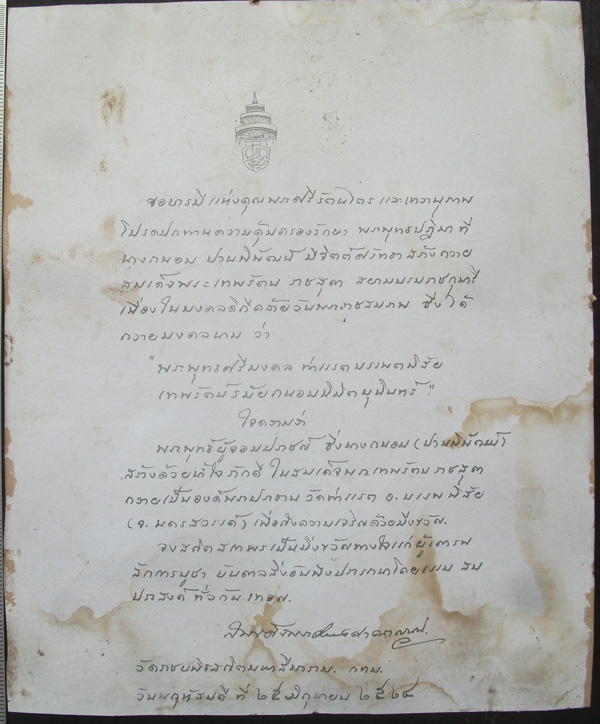 ขอบารมีแห่งคุณพระศรีรัตนไตร และเทวานุภาพ
โปรดประทานความคุ้มครองรักษา พระพุทธปฏิมา ที่
นางถนอม ปานพิพัฒน์ มีจิตต์ศรัทธา สร้างถวาย
สมเด็จพระเทพรัตน ราชสุดา สยามบรมราชกุมารี
เนื่องในมงคลดิถีคล้ายวันพระราชสมภพ ซึ่งได้
ถวายมงคลนาม ว่า
"พระพุทธศรีมงคล ท่าแรตบรรพตพิสัย
เทพรัตน์วินัยถนอมพิพิตมุนินทร์"
ใจความว่า
พระพุทธผู้จอมปราชญ์ ซึ่งนางถนอม (ปานพิพัฒน์)
สร้างด้วยหัวใจภักดี ในสมเด็จพระเทพรัตน ราชสุดา
ถวายเป็นองค์พระประธาน วัดท่าแรต อ. บรรพตพิสัย
(จ. นครสวรรค์) เพื่อถึงความเจริญด้วยมิ่งขวัญ.
จงสถิตสถาพรเป็นมิ่งขวัญทางใจแก่ผู้เคารพ
สักการบูชา บันดาลสิ่งอันพึงปรารถนาโดยธรรม สม
ประสงค์ ทั่วกัน เทอญ.
วัดราชบพิธสถิตมหาสีมาราม. กทม.
วันพฤหัสบดี ที่ ๒๕ มิถุนายน ๒๕๒๔